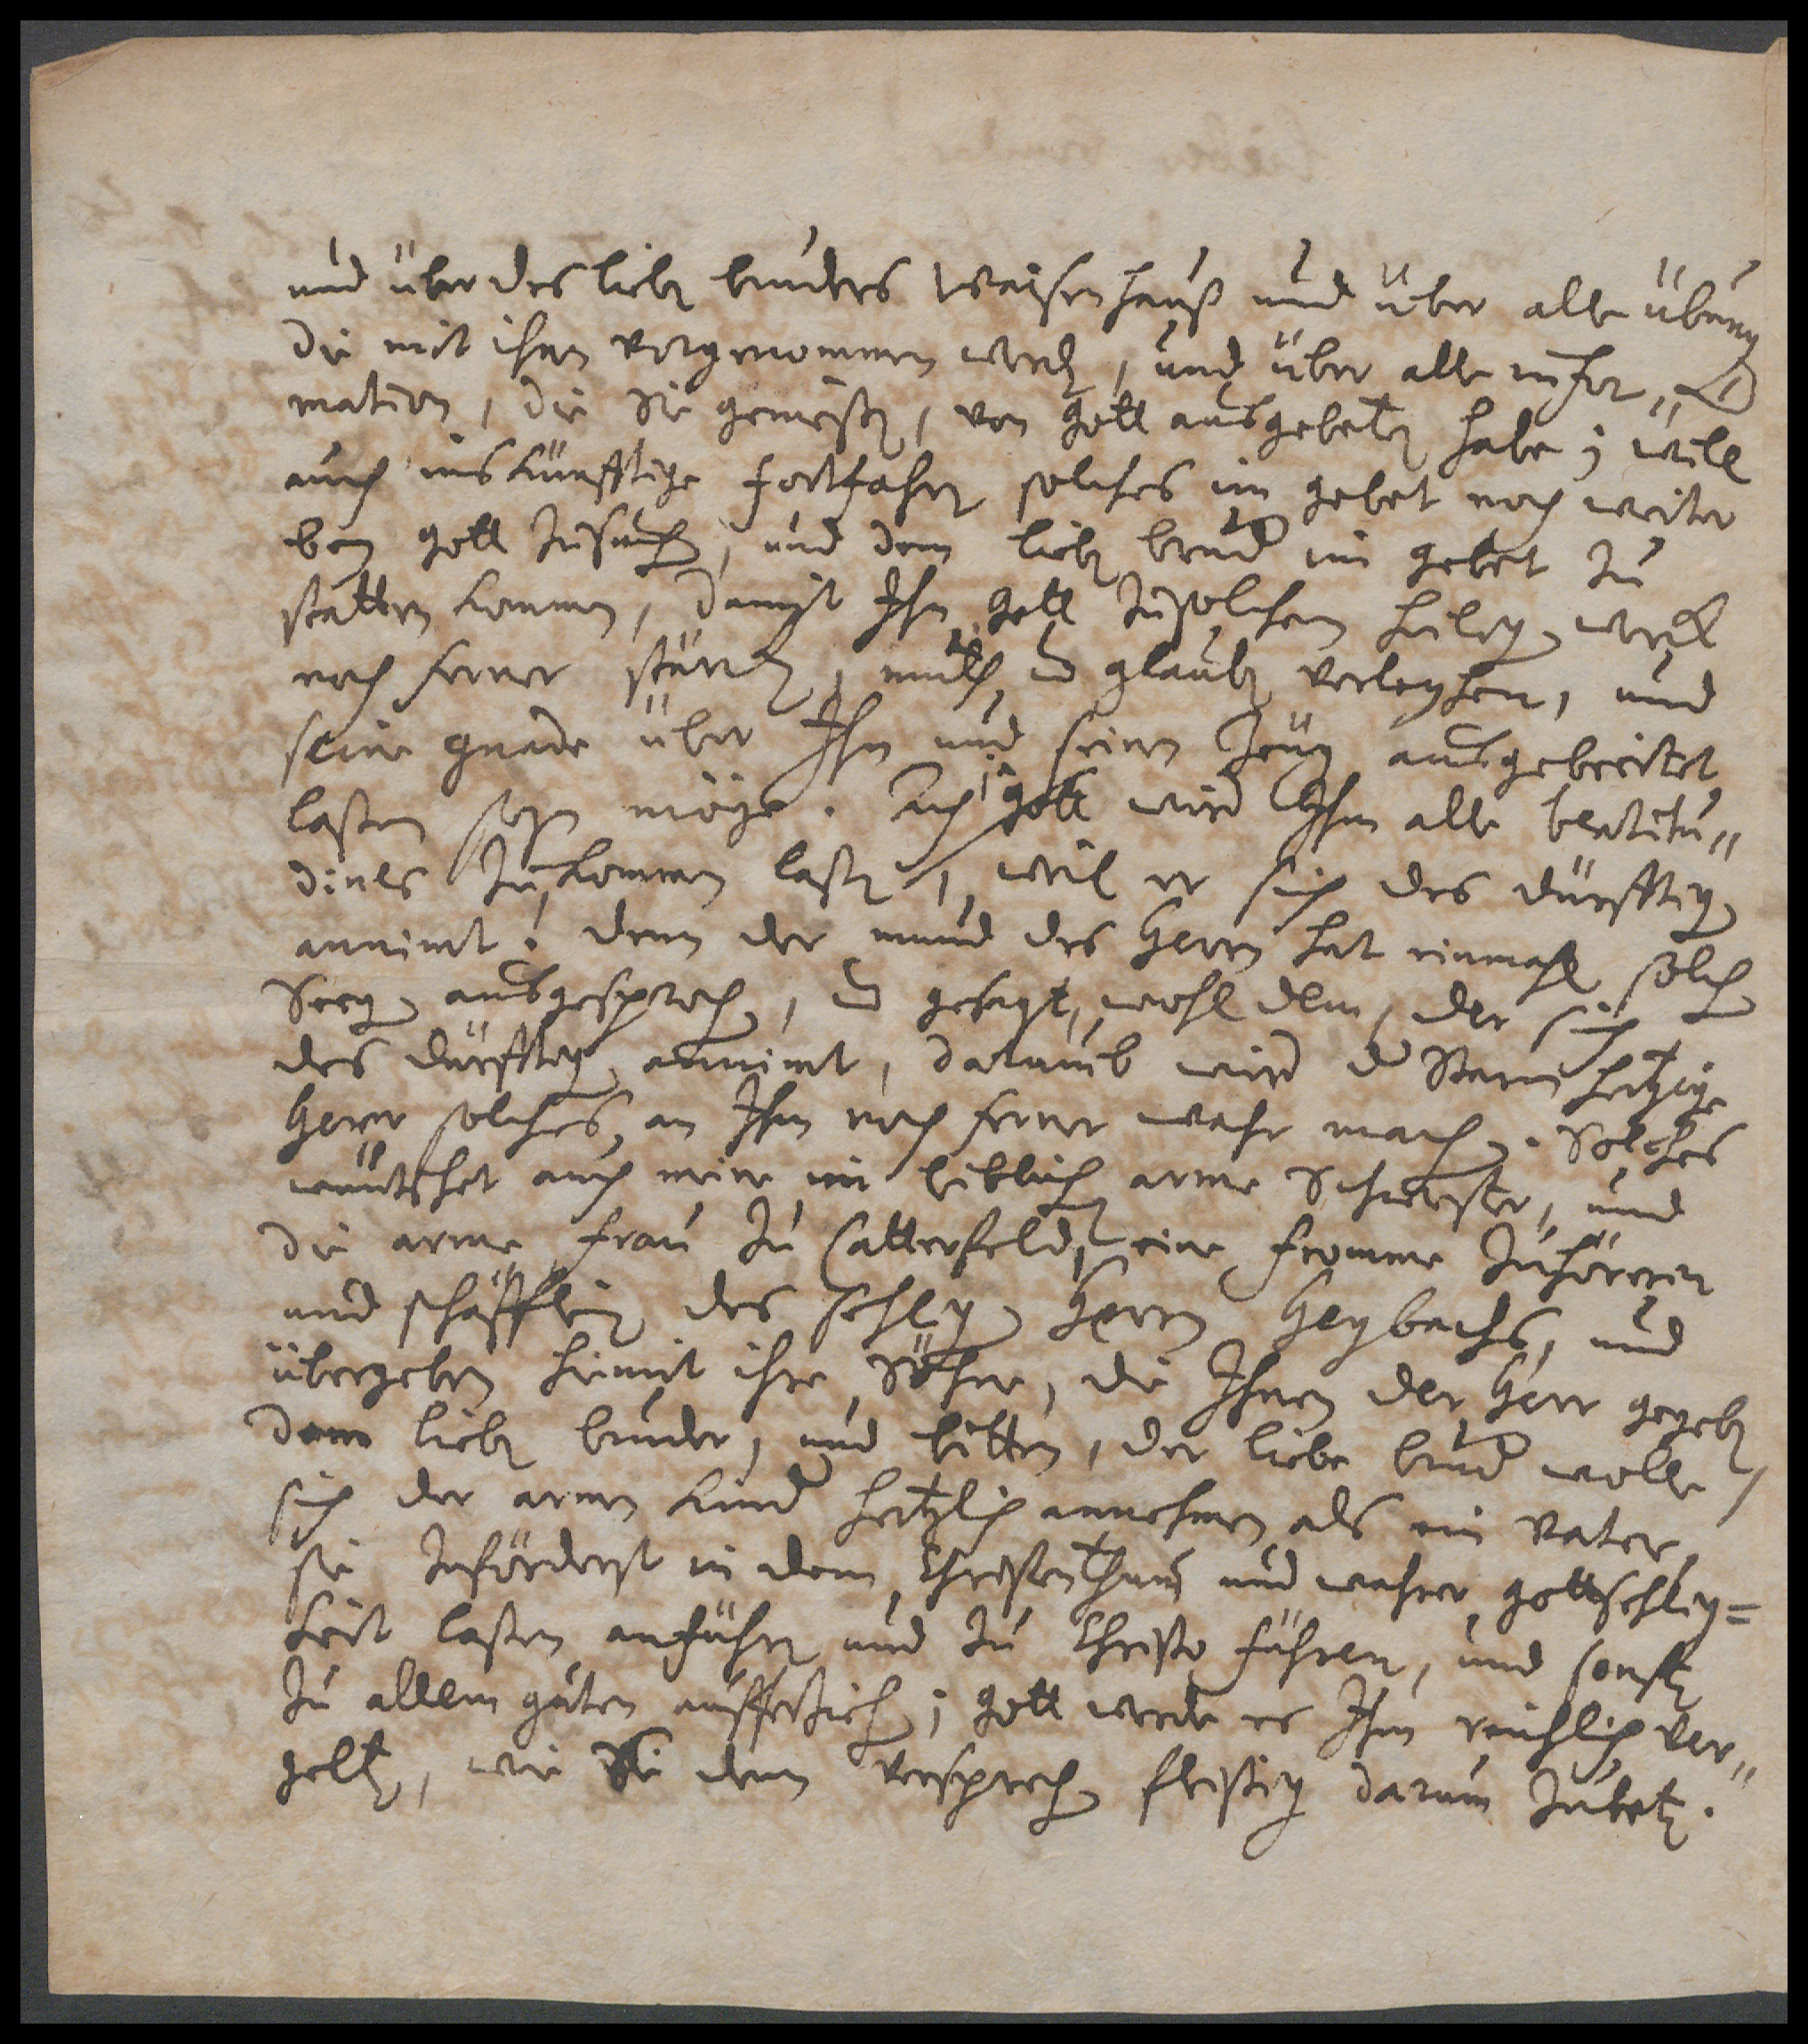 und über des lieben bruders Waisenhauß und über alle übung
die mit ihnen vorgenommen werden, und über alle infor„
mation, die sie genießen, von Gott ausgebeten habe; will
auch ins künfftige fortfahren solches im gebet noch weiter
bey Gott zusuchen, und dem lieben bruder im gebet zu
statten kommen, damit Ihn Gott zusolchem heiligen werck
noch ferner stärcken, muth und glauben verleyhen, und
seine gnade über Ihn und seinen Zeug ausgebreitet
laßen seyn möge. Ach Gott wird Ihm alle beatitu„
dines zu kommen laßen, weil er sich des dürfftigen
annimt! denn der mund des Herrn hat einmahl solchen
Seegen ausgesprochen, und gesagt, wohl dem, der sich
des dürfftigen annimt, darumb wird der Barmhertzige
Herr solches an Ihm noch ferner wahr machen. Solches
wüntschet auch meine im leiblichen arme Schwester, und
die arme frau zu Catterfeld, eine fromme Zuhörerin
und schäfflein des sehligen Herrn Heybachs, und
übergeben hiemit ihre Söhne, die Ihnen der Herr gegeben
dem lieben bruder, und bitten, der liebe bruder wolle
sich der armen Kinder hertzlich annehmen als ein Vater,
sie zuförderst in dem Christenthum und wahrer gottsehlig=
keit laßen anführen und zu Christo führen, und sonsten
zu allem guten aufferziehen; Gott werde es Ihm reichlich ver„
gelten, wie Sie denn versprechen fleißig darum zubeten.